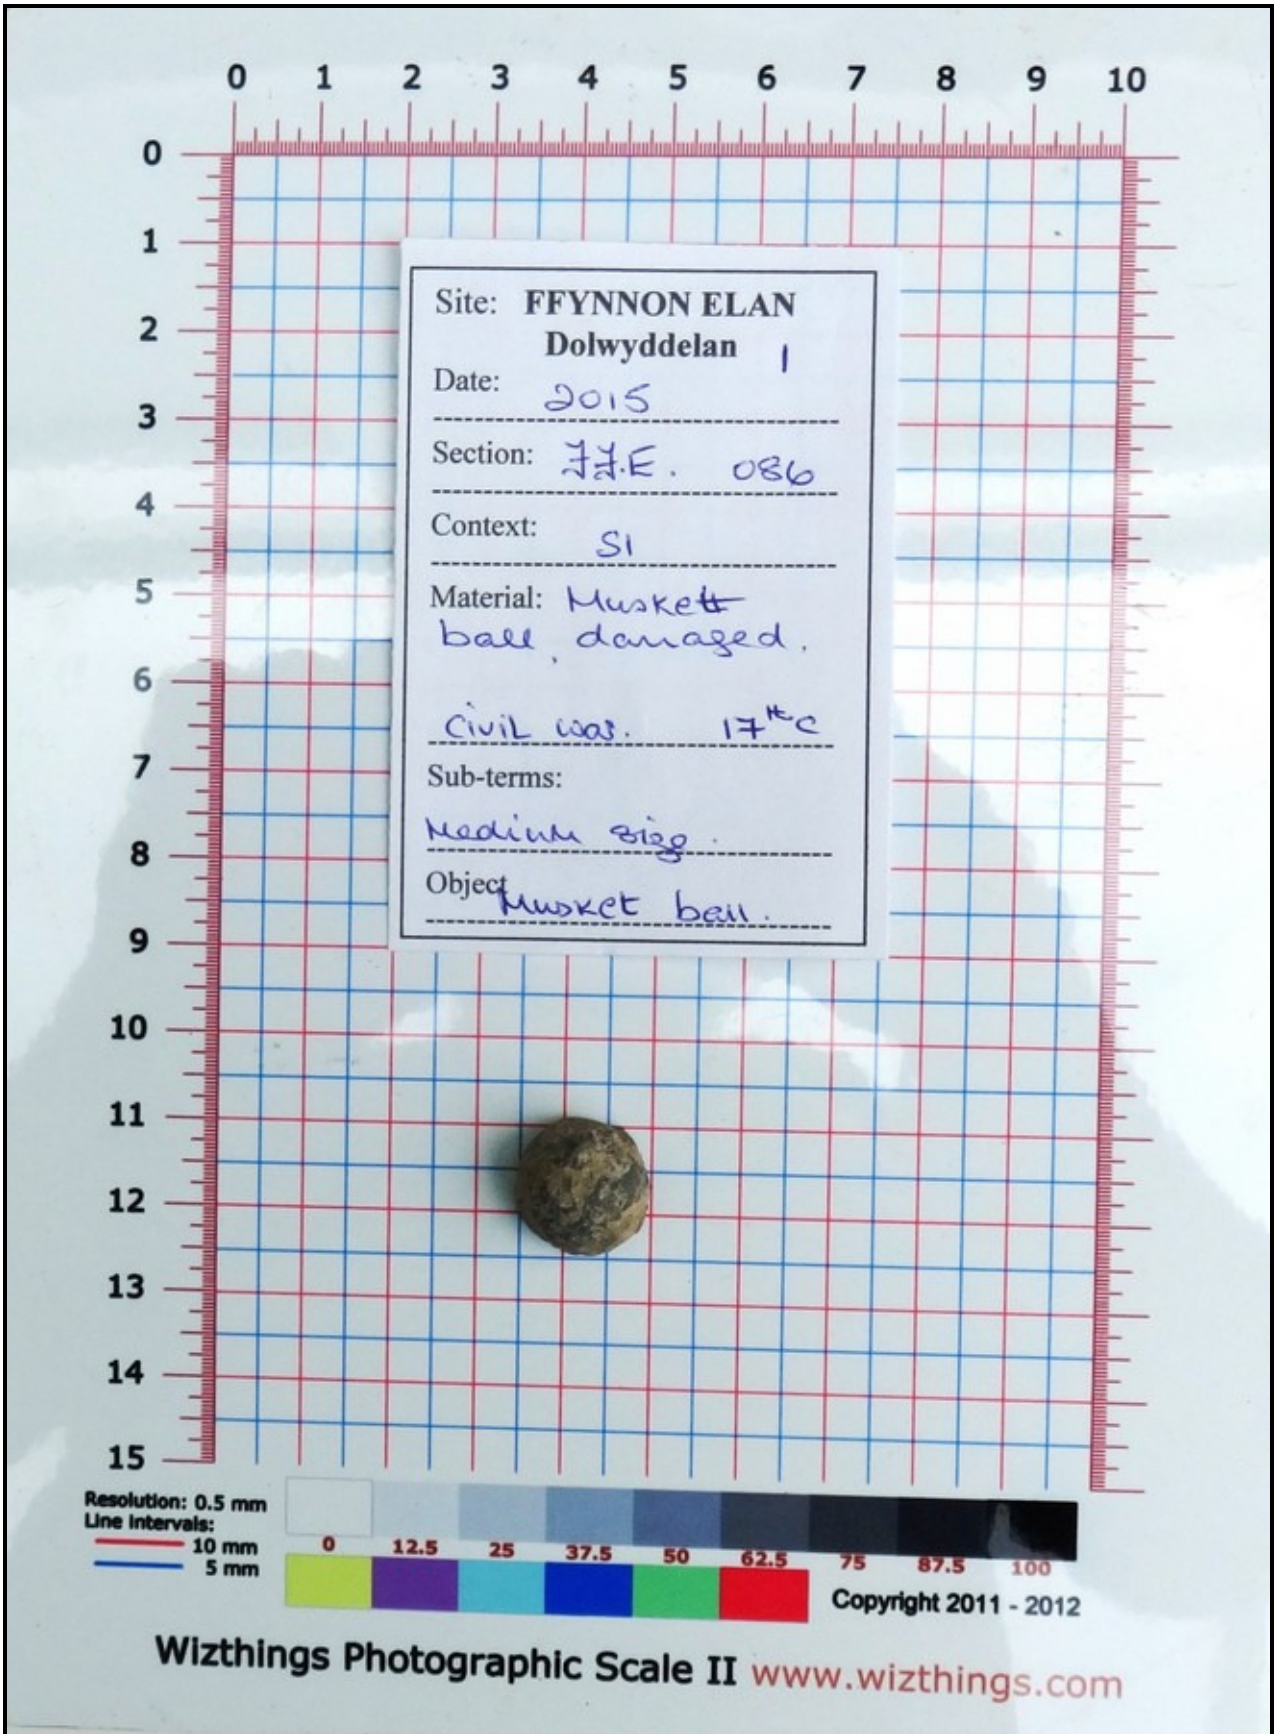 0 1 2 3 4 5 6 7 8 9 10
0
1
2
3
4
5
6
7
8
9
10
11
12
13
14
15
Site: FFYNNON ELAN
Dolwyddelan 1
Date: 2015
Section: FF.E. 086
Context: S1
Material: Muskett
ball, damaged.
Civil war. 17th C
Sub-terms:
Medium size.
Object Musket ball.
Resolution: 0.5 mm
Line Intervals:
10 mm
5 mm
0 12.5 25 37.5 50 62.5 75 87.5 100
Copyright 2011 - 2012
Wizthings Photographic Scale II www.wizthings.com